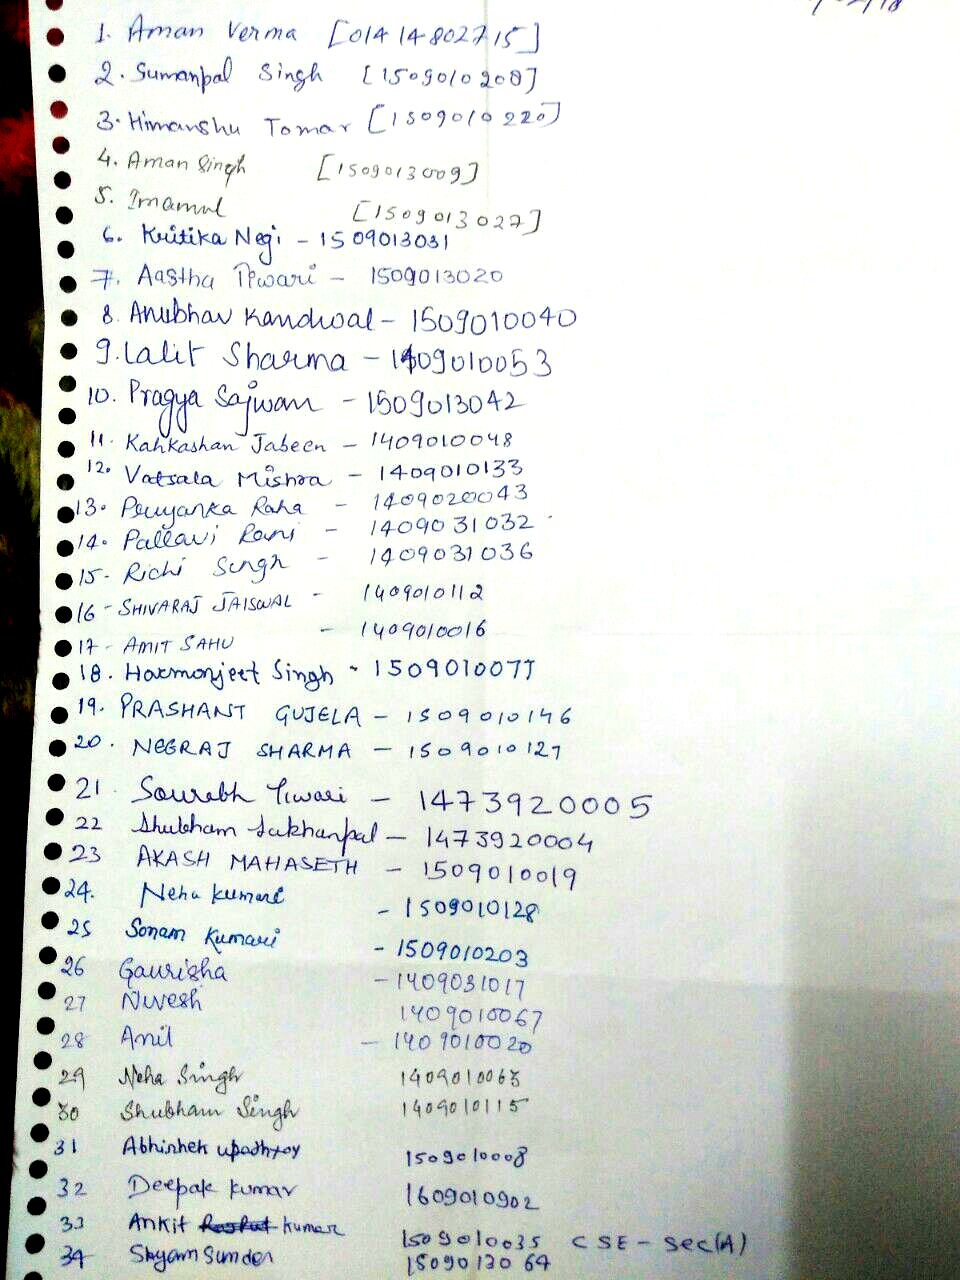 1. Aman Verma [01414802715]
2. Sumanpal Singh [1509010208]
3. Himanshu Tomar [1509010220]
4. Aman Singh [1509013009]
5. Imamul [1509013027]
6. Kritika Negi - 1509013031
7. Aastha Tiwari - 1509013020
8. Anubhav Kandwal - 1509010040
9. Lalit Sharma - 1409010053
10. Pragya Sajwan - 1509013042
11. Kahkashan Jabeen - 1409010048
12. Vatsala Mishra - 1409010133
13. Priyanka Raha - 1409020043
14. Pallavi Rani - 1409031032
15- Richi Singh - 1409031036
16 - SHIVARAJ JAISWAL - 1409010112
17 - AMIT SAHU - 1409010016
18. Harmonjeet Singh - 1509010077
19. PRASHANT GUJELA - 1509010146
20. NEERAJ SHARMA - 1509010127
21. Sourabh Tiwari - 1473920005
22 Shubham Lakhanpal - 1473920004
23 AKASH MAHASETH - 1509010019
24. Neha Kumari - 1509010128
25 Sonam Kumari - 1509010203
26 Gaurisha - 1409031017
27 Nivesh 1409010067
28 Anil - 1409010020
29 Neha Singh 1409010063
30 Shubham Singh 1409010115
31 Abhishek upadhyay 1509010008
32 Deepak Kumar 1609010902
33 Ankit Kumar 1509010035 CSE - Sec(A)
34 Shyam Sunder 1509013064